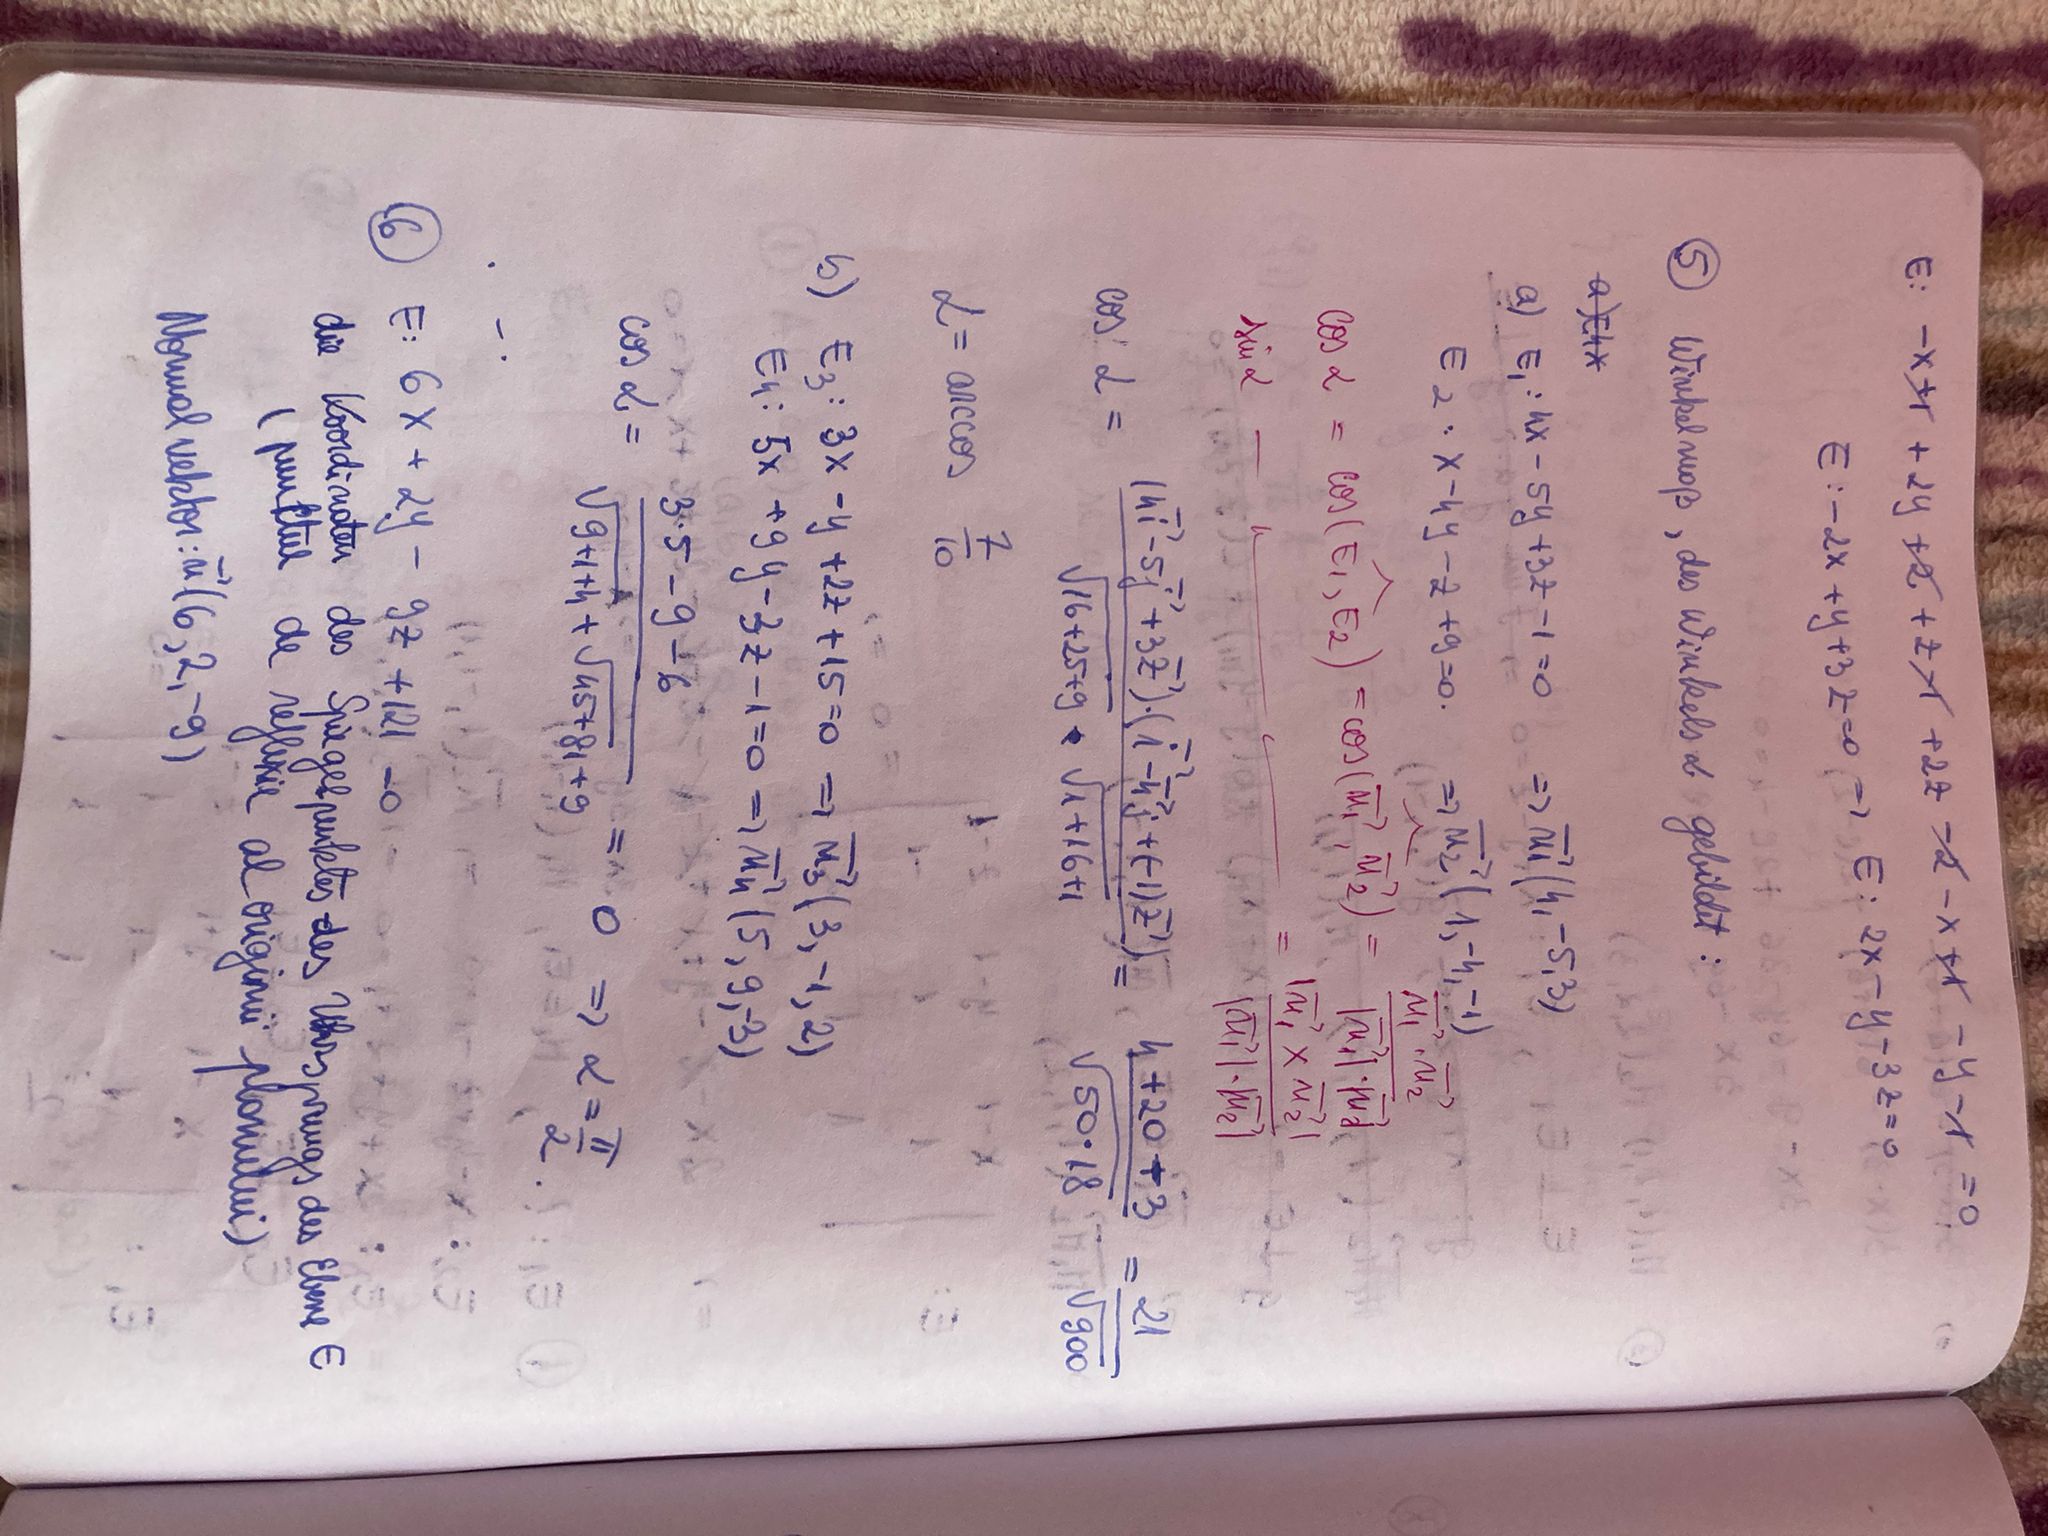 E: -x+1 + 2y +2 + z-1 + 2z -2 - x +1 - y - 1 = 0
E: -2x + y + 3z = 0 => E: 2x - y - 3z = 0
⑤ Winkelmaß, des Winkels α gebildet:
a) E4x
a) E₁: 4x - 5y + 3z - 1 = 0 => n₁⃗ (4, -5, 3)
E₂: x - 4y - z + 9 = 0. => n₂⃗ (1, -4, -1)
cos α = cos(E₁, E₂) = cos(n₁⃗, n₂⃗) = n₁⃗ · n₂⃗ / |n₁⃗| · |n₂⃗|
sin α — " — = |n₁⃗ × n₂⃗| / |n₁⃗| · |n₂⃗|
cos α = (4i⃗ - 5j⃗ + 3z⃗) · (i⃗ - 4j⃗ + (-1)z⃗) / √16+25+9 · √1+16+1 = 4 + 20 - 3 / √50·18 = 21 / √900
α = arccos 7/10
b) E₃: 3x - y + 2z + 15 = 0 => n₃⃗ (3, -1, 2)
E₄: 5x + 9y - 3z - 1 = 0 => n₄⃗ (5, 9, -3)
cos α = 3·5 - 9 - 6 / √9+1+4 + √45+81+9 = 0 => α = π/2.
⑥ E: 6x + 2y - 9z + 121 = 0
die Koordinaten des Spiegelpunktes des Uhrsprungs des Ebene E
(punktul de reflexie al originii planului)
Normalvektor: n⃗ (6, 2, -9)